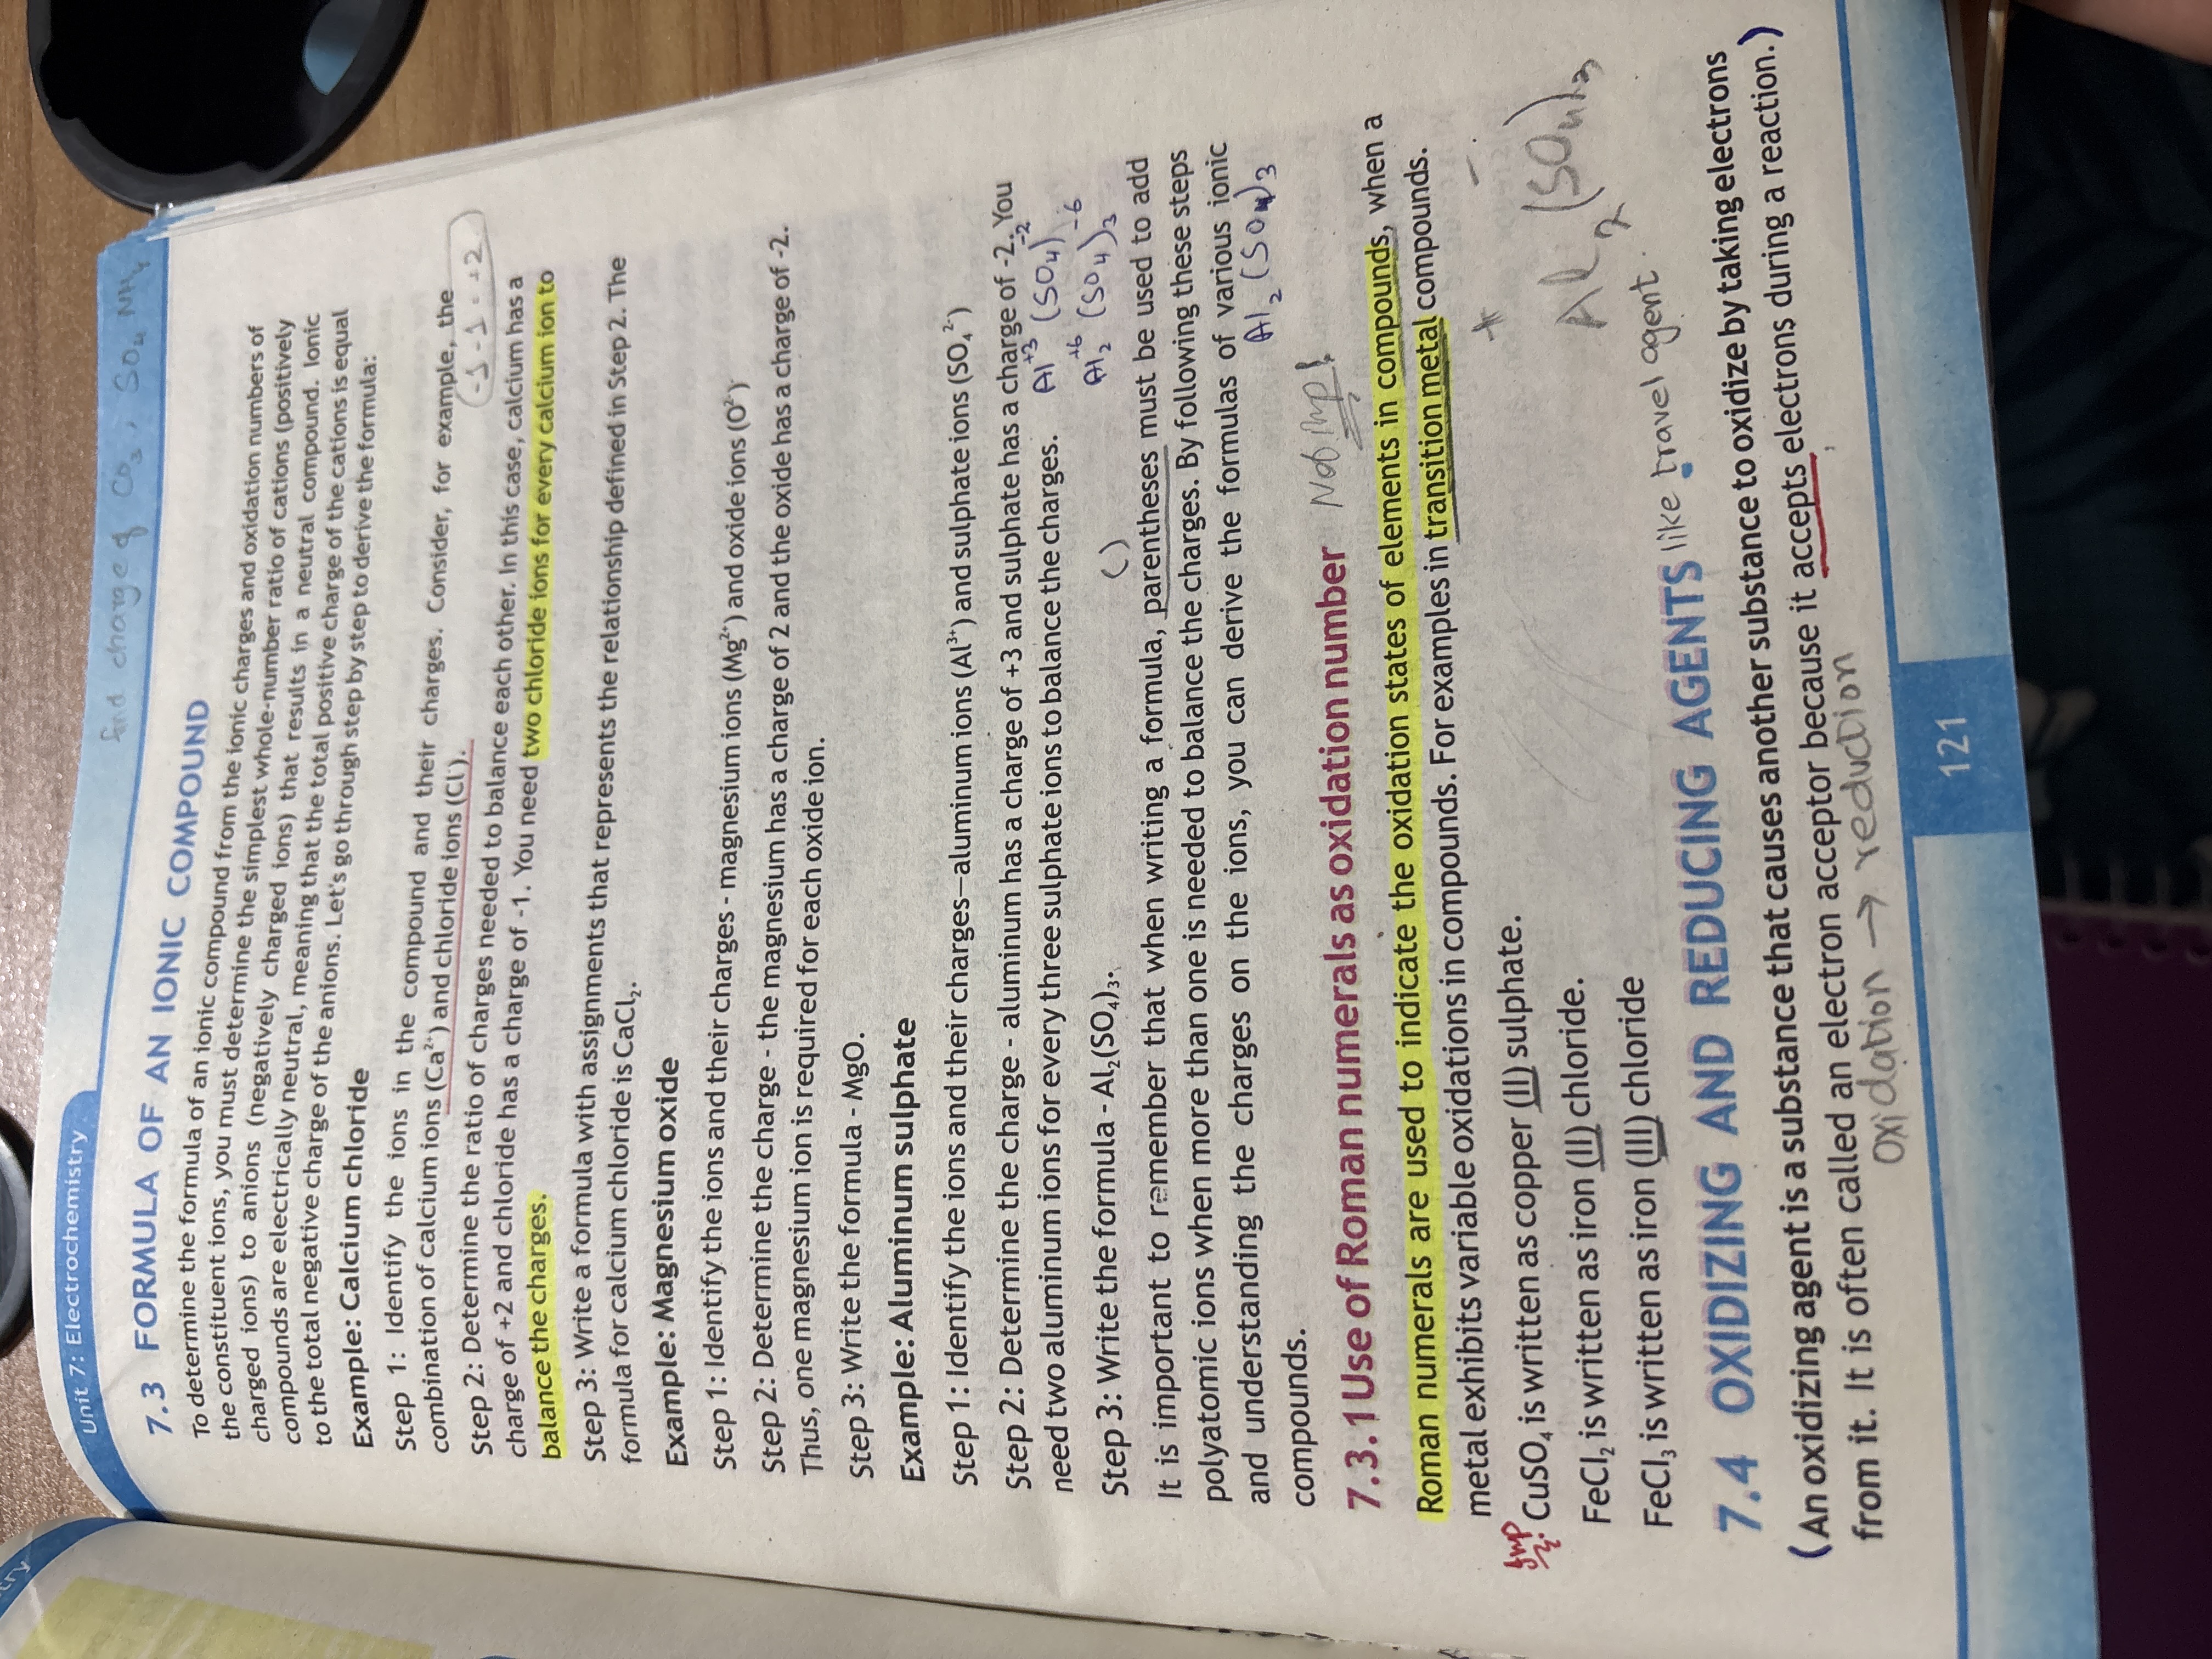 Unit 7: Electrochemistry
find charge of CO₃, SO₄ NH₄
7.3 FORMULA OF AN IONIC COMPOUND
To determine the formula of an ionic compound from the ionic charges and oxidation numbers of
the constituent ions, you must determine the simplest whole-number ratio of cations (positively
charged ions) to anions (negatively charged ions) that results in a neutral compound. Ionic
compounds are electrically neutral, meaning that the total positive charge of the cations is equal
to the total negative charge of the anions. Let's go through step by step to derive the formula:
Example: Calcium chloride
-1 -1 = +2
Step 1: Identify the ions in the compound and their charges. Consider, for example, the
combination of calcium ions (Ca²⁺) and chloride ions (Cl⁻).
Step 2: Determine the ratio of charges needed to balance each other. In this case, calcium has a
charge of +2 and chloride has a charge of -1. You need two chloride ions for every calcium ion to
balance the charges.
Step 3: Write a formula with assignments that represents the relationship defined in Step 2. The
formula for calcium chloride is CaCl₂.
Example: Magnesium oxide
Step 1: Identify the ions and their charges - magnesium ions (Mg²⁺) and oxide ions (O²⁻)
Step 2: Determine the charge - the magnesium has a charge of 2 and the oxide has a charge of -2.
Thus, one magnesium ion is required for each oxide ion.
Step 3: Write the formula - MgO.
Example: Aluminum sulphate
Step 1: Identify the ions and their charges—aluminum ions (Al³⁺) and sulphate ions (SO₄²⁻)
Step 2: Determine the charge - aluminum has a charge of +3 and sulphate has a charge of -2. You
need two aluminum ions for every three sulphate ions to balance the charges.
Al⁺³ (SO₄)⁻²
Al₂⁺⁶ (SO₄)₃⁻⁶
Step 3: Write the formula - Al₂(SO₄)₃.
( )
It is important to remember that when writing a formula, parentheses must be used to add
polyatomic ions when more than one is needed to balance the charges. By following these steps
and understanding the charges on the ions, you can derive the formulas of various ionic
compounds.
Al₂(SO₄)₃
7.3.1 Use of Roman numerals as oxidation number
Not Imp!
Roman numerals are used to indicate the oxidation states of elements in compounds, when a
metal exhibits variable oxidations in compounds. For examples in transition metal compounds.
Imp
CuSO₄ is written as copper (II) sulphate.
+ -
FeCl₂ is written as iron (II) chloride.
Al₂(SO₄)₃
FeCl₃ is written as iron (III) chloride
7.4 OXIDIZING AND REDUCING AGENTS like travel agent.
(An oxidizing agent is a substance that causes another substance to oxidize by taking electrons
from it. It is often called an electron acceptor because it accepts electrons during a reaction.)
oxidation → reduction
121